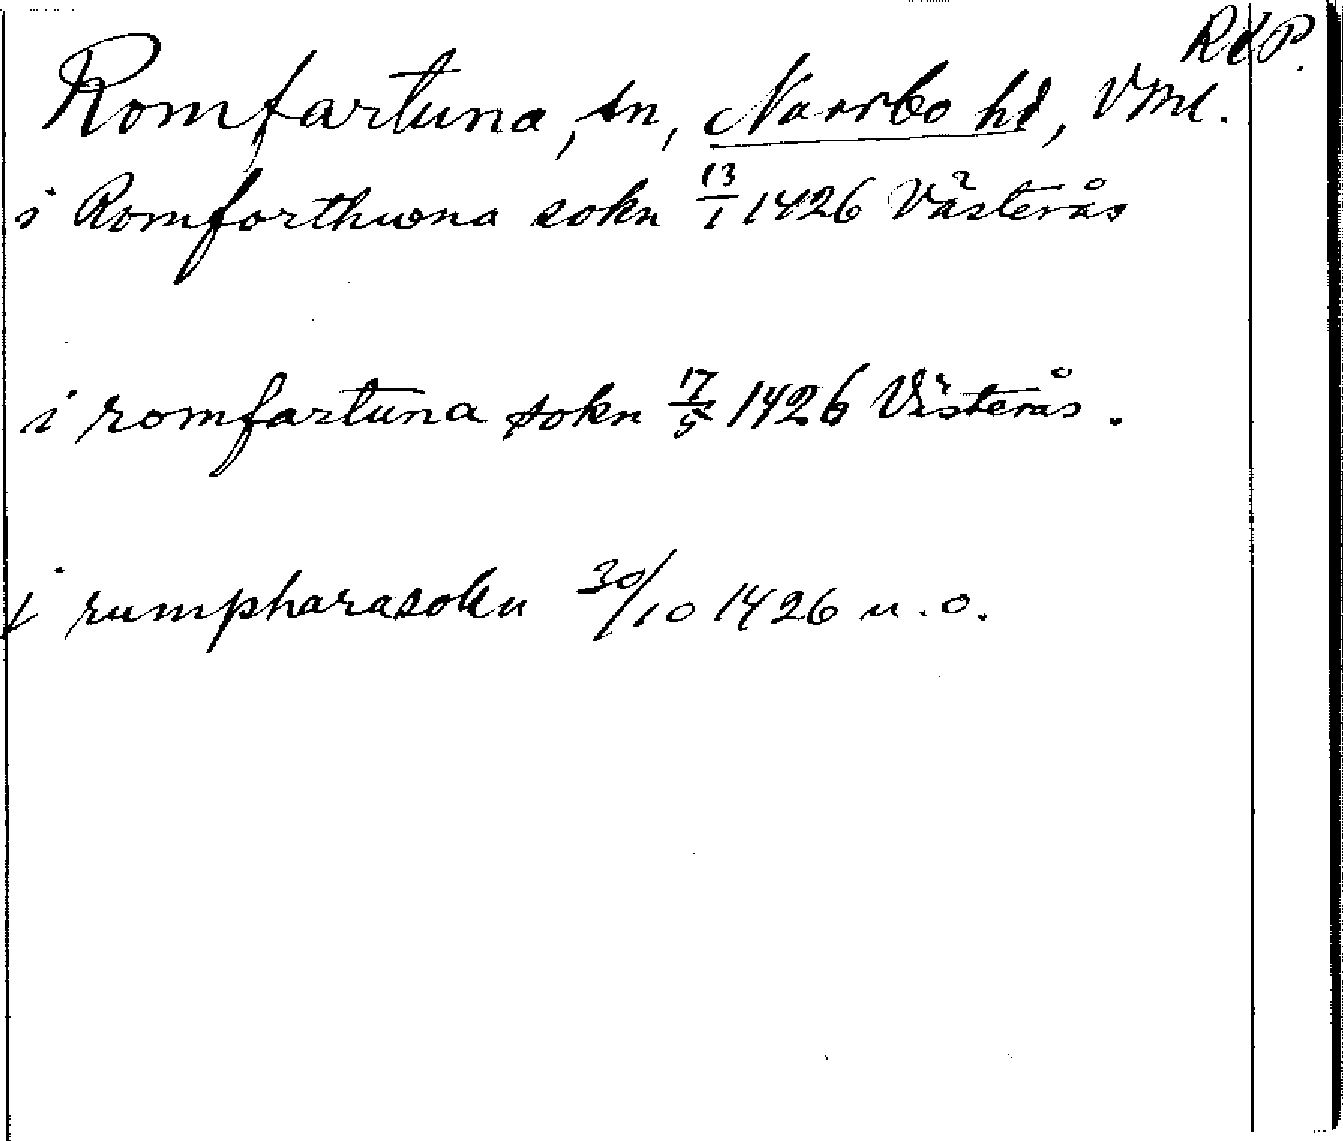 RdP.
Romfartuna, sn, Norrbo hd, Vml.
i Romforthuna sokn 13/1 1426 Västerås
i romfartuna sokn 17/5 1426 Västerås.
i rumpharasokn 30/10 1426 u.o.